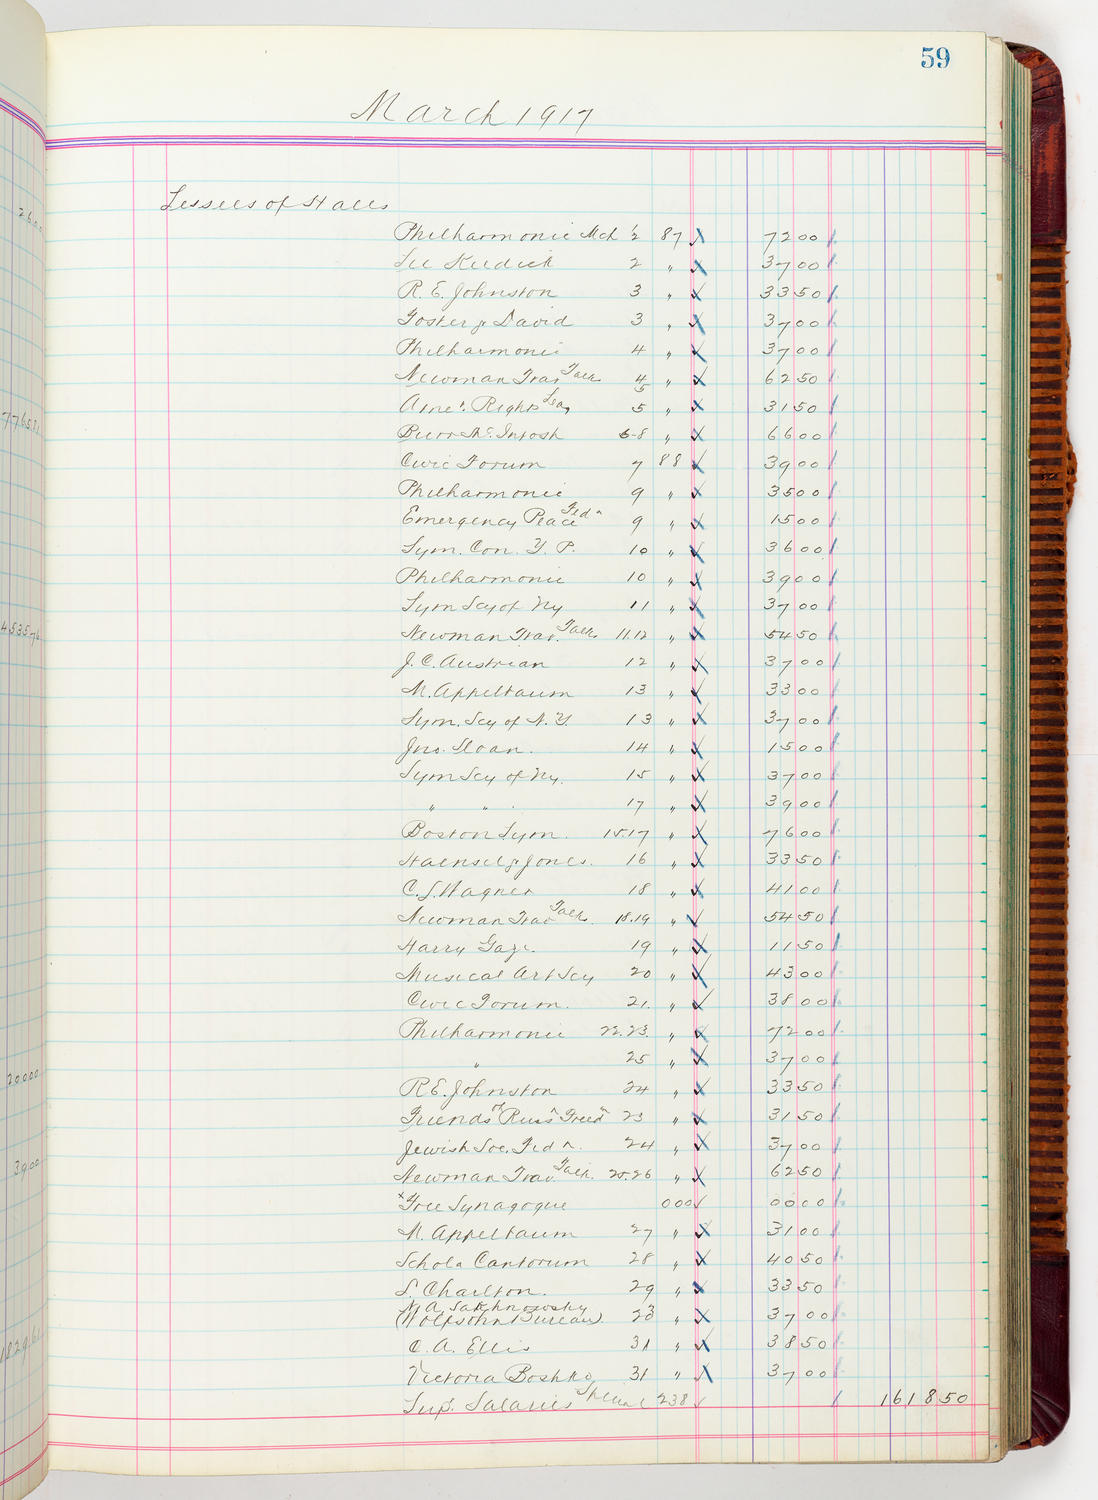 59
March 1917
Lessees of Halls
Philharmonic Mch 1/2 87 7200
Lee Keedick 2 " 3700
R. E. Johnston 3 " 3350
Foster & David 3 " 3700
Philharmonic 4 " 3700
Newman Trav Talk 4 5 " 6250
Amer. Rights Leag 5 " 3150
Burr McIntosh 6-8 " 6600
Civic Forum 7 88 3900
Philharmonic 9 " 3500
Emergency Peace Fed n 9 " 1500
Sym. Con. Y. P. 10 " 3600
Philharmonic 10 " 3900
Sym Scy of Ny 11 " 3700
Newman Trav. Talk 11.12 " 5450
J. C. Austrian 12 " 3700
M. Appelbaum 13 " 3300
Sym. Scy of N. Y. 13 " 3700
Jno. Sloan. 14 " 1500
Sym Scy of Ny. 15 " 3700
" " 17 " 3900
Boston Sym. 15.17 " 7600
Haensel & Jones. 16 " 3350
C. L. Wagner 18 " 4100
Newman Trav Talk. 18.19 " 5450
Harry Gaze. 19 " 1150
Musical Art Scy 20 " 4300
Civic Forum. 21. " 3800
Philharmonic 22.23. " 7200
" 25 " 3700
R.E. Johnston 24 " 3350
Friends of Russn Freedm 23 " 3150
Jewish Soc. Fed n. 24 " 3700
Newman Trav. Talk. 25.26 " 6250
x Free Synagogue 000 0000
M. Appelbaum 27 " 3100
Schola Cantorum 28 " 4050
L. Charlton. 29 " 3350
M. A. Sakhnowsky
(Wolfsohn Bureau) 23 " 3700
C. A. Ellis 31 " 3850
Victoria Boshko 31 " 3700
Sup. Salaries Special 238 161850